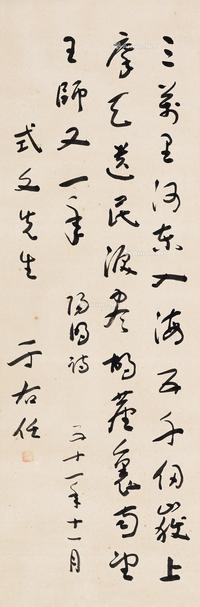 三萬里河東入海五千仞嶽上
摩天遺民淚盡胡塵裏南望
王師又一年 詩 十一年十一月
式文先生 于右任